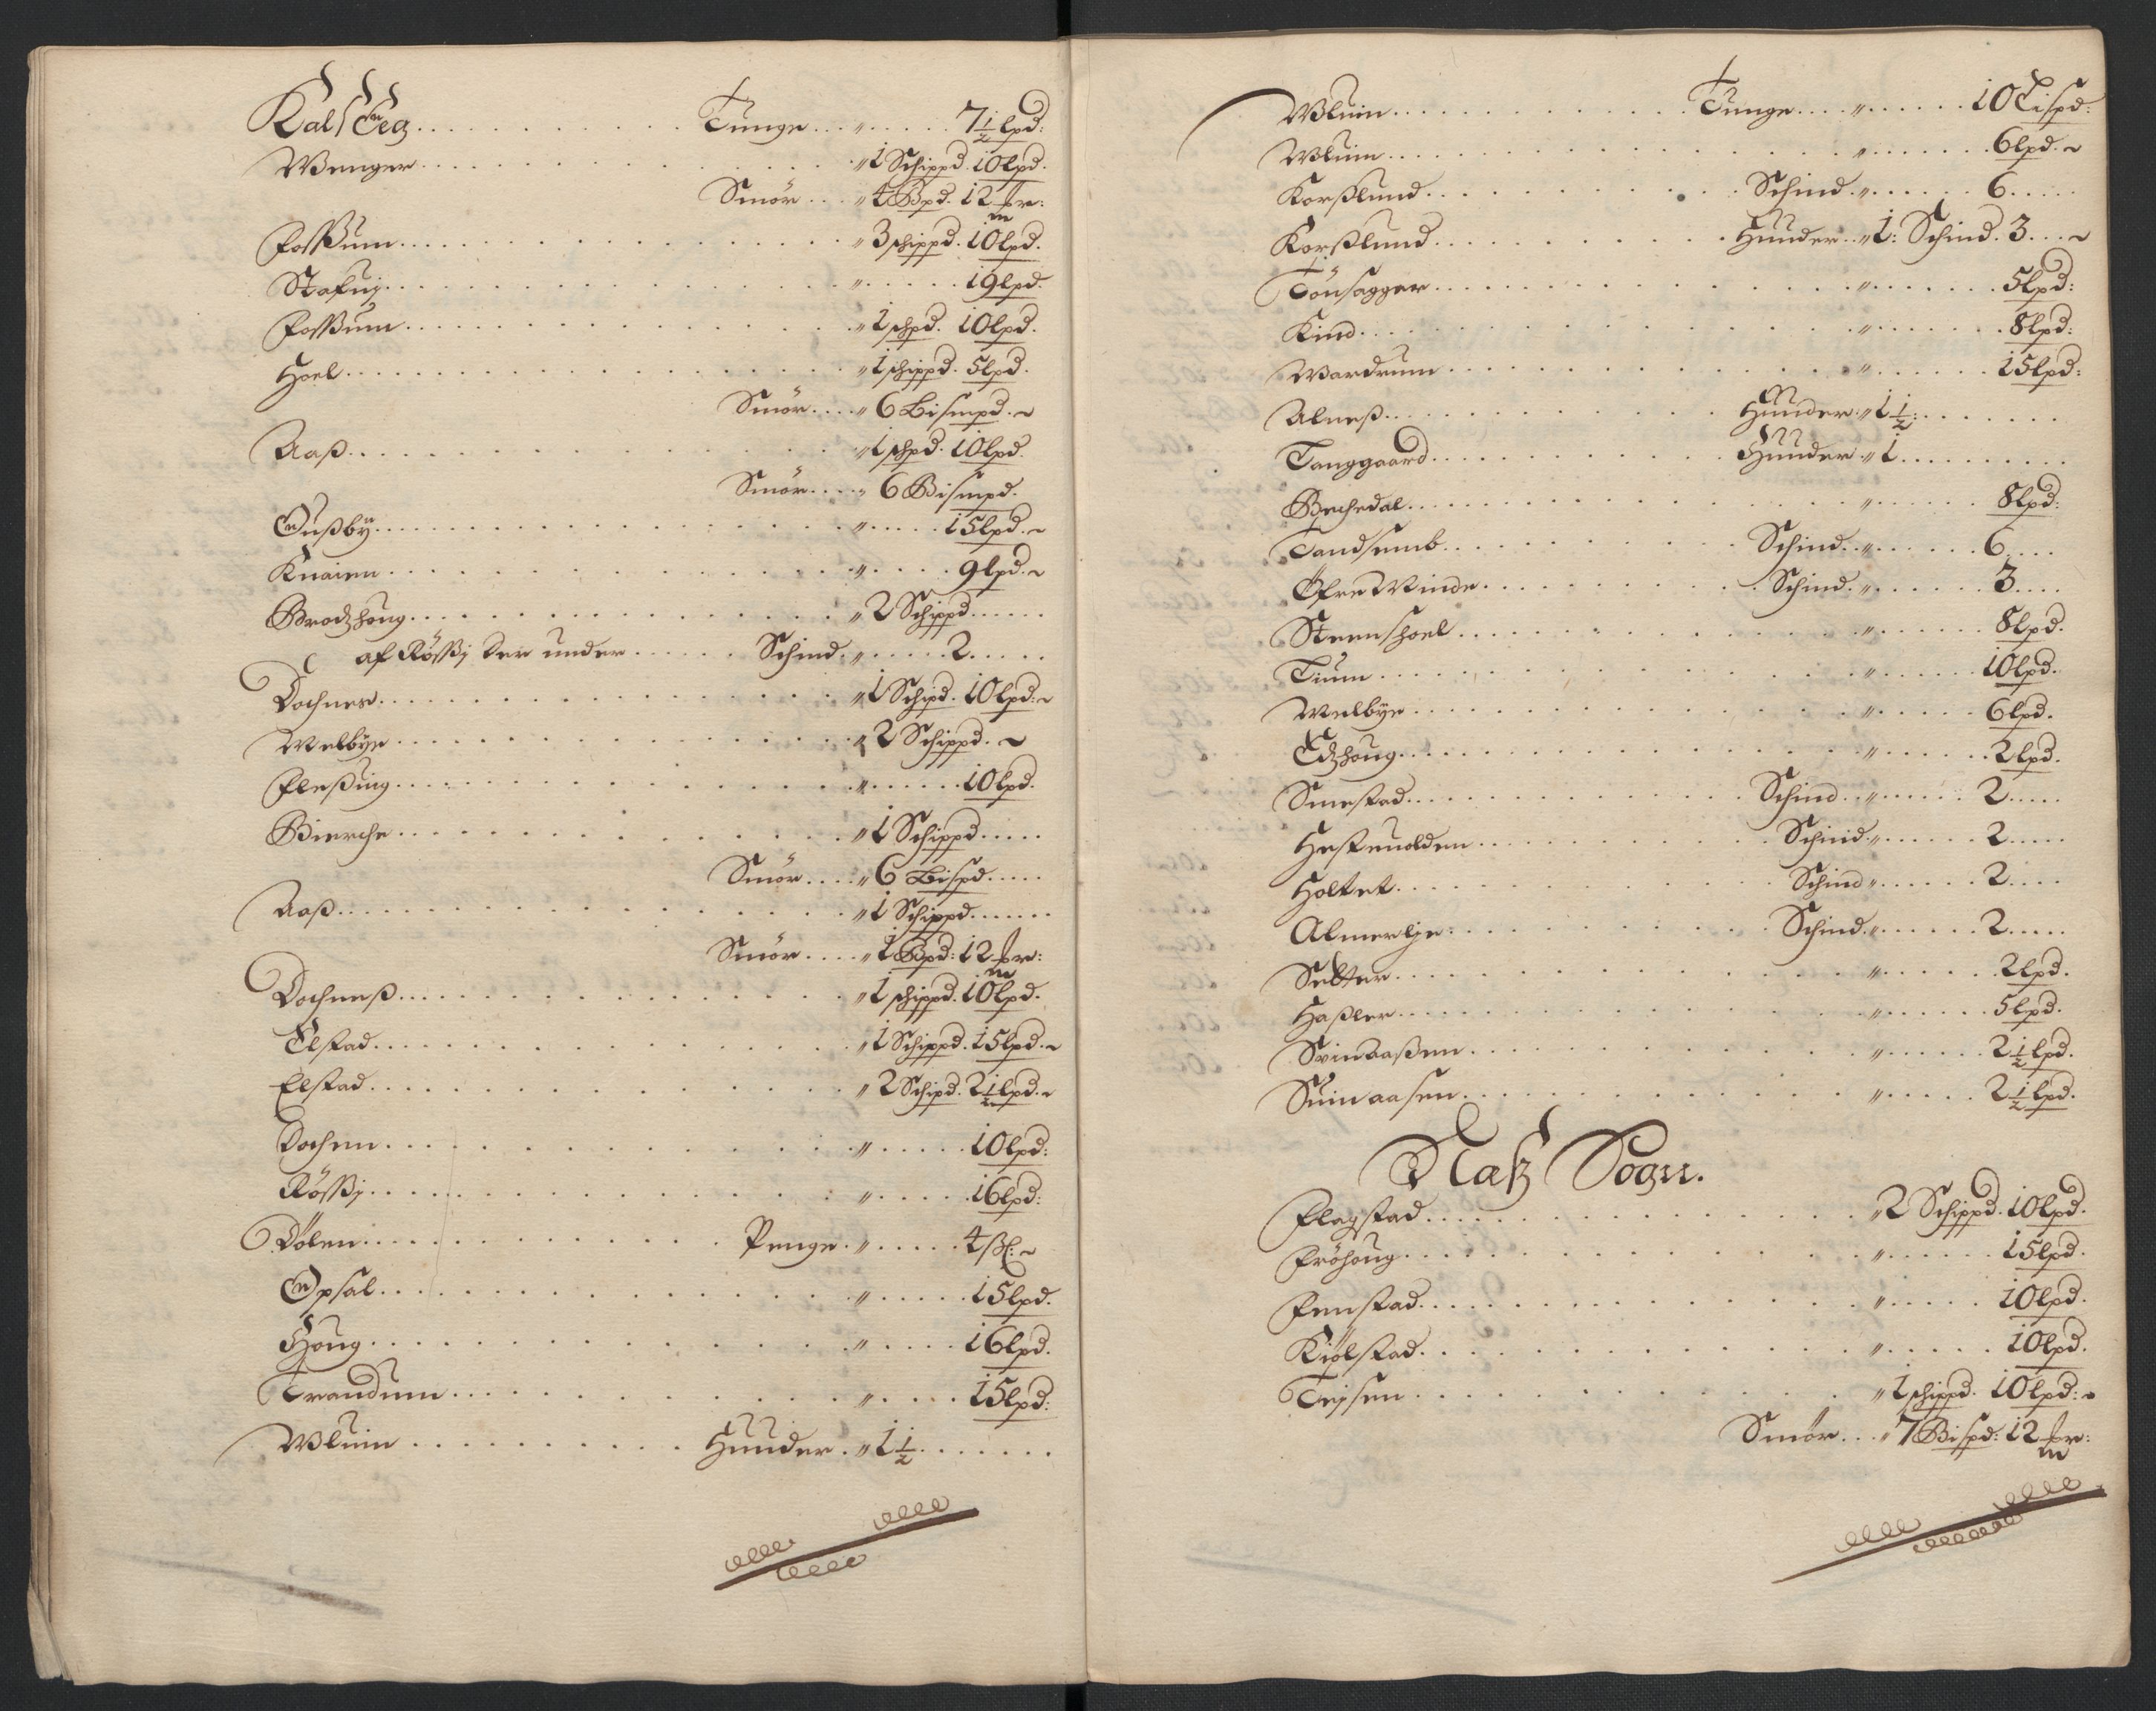 Kals Eeg . . . . Tunge . . . " . . . 7½ lpd:
Wenger . . . . "1 Schippd. 10 lpd.
Smör . . . "4 Bpd. 12 mr:
Fossum . . . . "3 schippd. 10 lpd.
Stafuj . . . . " . . . 19 lpd.
Fossum . . . . "1 schpd. 10 lpd.
Hoel . . . . "1 schippd. 5 lpd.
Smör . . . . "6 Bismpd.
Aaß . . . . "1 schpd. 10 lpd.
Smör . . . . "6 Bismpd.
Oußby . . . . " . . . 15 lpd.
Knaien . . . . " . . . 9 lpd.
Brodzhoug . . . . "2 Schippd . . .
af Rössj der under . . . . Schind. " . . . 2 . . .
Dochnes . . . . "1 Schipd. 10 lpd:
Melbye . . . . "2 Schippd.
Fleßing . . . . " . . . 10 lpd.
Bierche . . . . "1 Schippd . . .
Smör . . . . "6 Bispd . . .
Aaß . . . . "1 Schippd . . .
Smör . . . . "1 Bpd: 12 mr:
Dochneß . . . . "1 schippd. 10 lpd.
Elstad . . . . "1 Schippd. 15 lpd.
Elstad . . . . "2 Schipd. 2½ lpd.
Dochen . . . . " . . . 10 lpd:
Rössj . . . . " . . . 16 lpd:
Dölen . . . . Penge . " . . . 4 ßl:
Opsal . . . . " . . . 15 lpd.
Houg . . . . " . . . 16 lpd.
Trandum . . . . " . . . 15 lpd:
Wluin . . . . Huuder . "1½ . . .
Wluin . . . . Tunge . . . " . . . 10 Lispd:
Wluin . . . . " . . . 6 lpd.
Korßlund . . . . Schind. " . . . 6 . . .
Korßlund . . . . Huuder . . "1: Schind. 3 . . .
Tönsagger . . . . " . . . 5 lpd:
Kind . . . . " . . . 8 lpd:
Wardrum . . . . " . . . 15 lpd:
Alneß . . . . Huuder: "1½: . . .
Tanggaard . . . . Huuder . "1 . . .
Bechedal . . . . " . . . 8 lpd:
Tandsemb . . . . Schind. . " . . . 6 . . .
Öfre Winde . . . . Schind. " . . . 3 . . .
Steenshoel . . . . " . . . 8 lpd.
Tium . . . . " . . . 10 lpd.
Melbye . . . . " . . . 6 lpd.
Edzhoug . . . . " . . . 2 lpd.
Smestad . . . . Schind . . " . . . 2 . . .
Hesteuolden . . . . Schind. " . . . 2 . . .
Holtet . . . . Schind " . . . 2 . . .
Almerlje . . . . Schind. " . . . 2 . . .
Selter . . . . " . . . 2 lpd.
Haßler . . . . " . . . 5 lpd.
Svinaaßen . . . . " . . . 2½ lpd.
Suinaasen . . . . " . . . 2½ lpd.
Naß Sogn.
Flagstad . . . . "2 Schippd. 10 lpd.
Fröhoug . . . . " . . . 15 lpd.
Fenstad . . . . " . . . 10 lpd.
Kiölstad . . . . " . . . 10 lpd.
Tejsen . . . . "1 schippd. 10 lpd:
Smör . . . "7 Bispd: 12 mr: